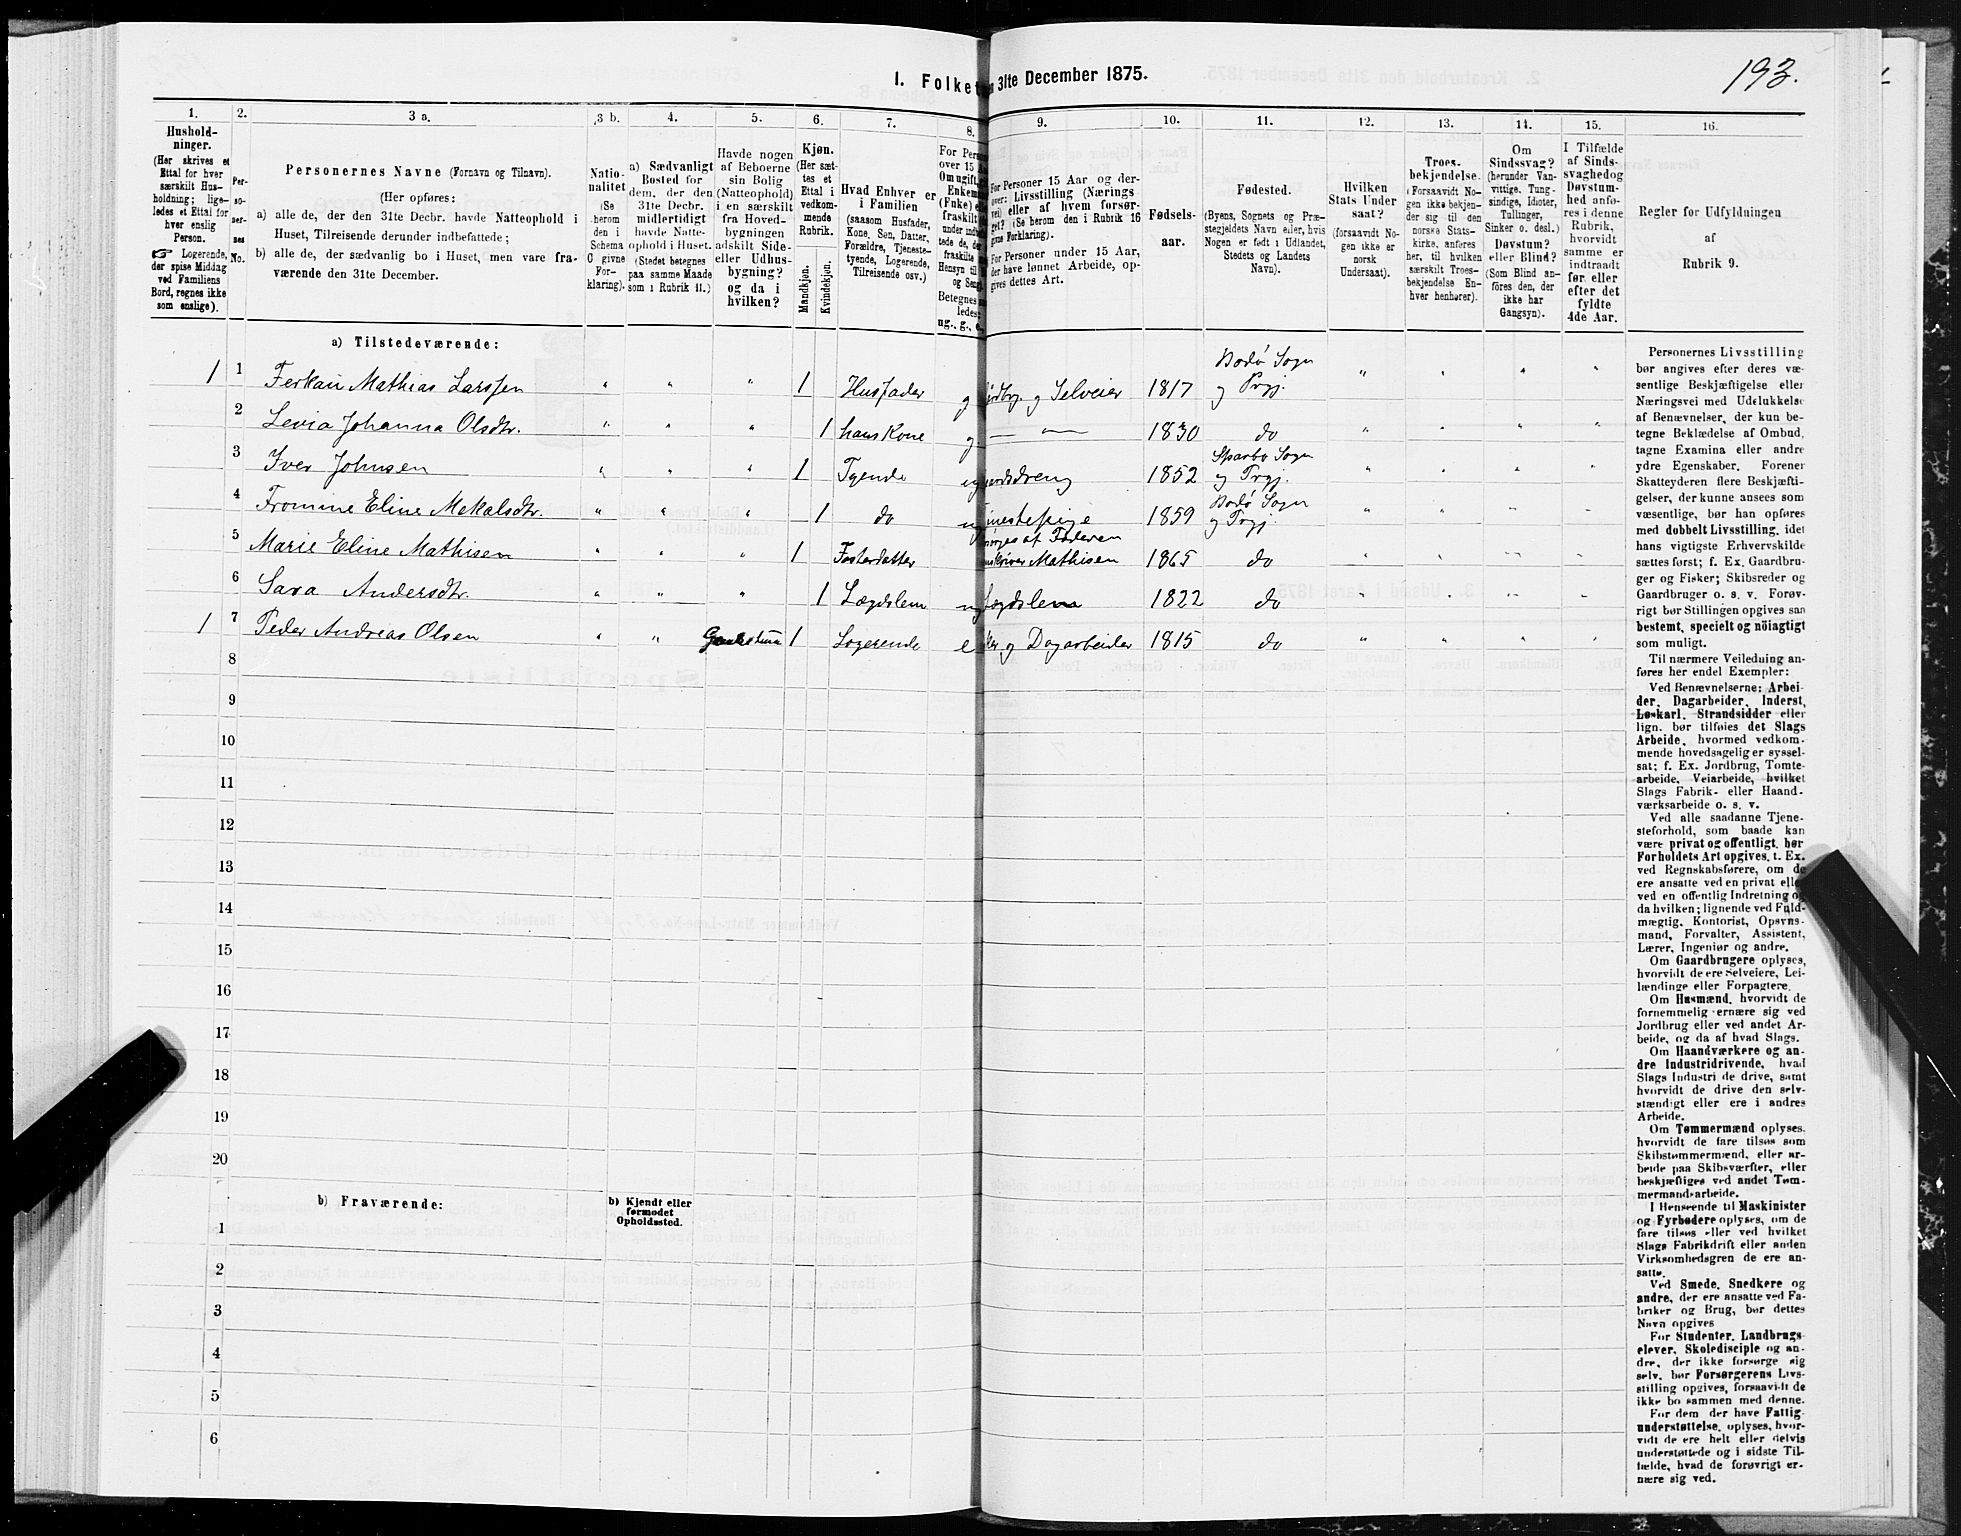 193.
I. Folket 31te December 1875.
1. 2. 3 a. 3 b. 4. 5. 6. 7. 8. 9. 10. 11. 12. 13. 14. 15. 16.
Hushold-
ninger.
(Her skrives et
Ettal for hver
særskilt Hus-
holdning; lige-
ledes et Ettal for
hver enslig
Person.
☞ Logerende,
der spise Middag
ved Familiens
Bord, regnes ikke
som enslige).
Per-
so-
ner-
nes
No.
Personernes Navne (Fornavn og Tilnavn).
(Her opføres:
a) alle de, der den 31te Decbr. havde Natteophold i
Huset, Tilreisende derunder indbefattede;
b) alle de, der sædvanlig bo i Huset, men vare fra-
værende den 31te December.
Natio-
nalitet
(Se
herom
den i
Schema
O givne
For-
klaring).
a) Sædvanligt
Bosted for
dem, der den
31te Decbr.
midlertidigt
havde Natte-
ophold i Huset.
(Stedet betegnes
paa samme Maade
som i Rubrik 11.)
Havde nogen
af Beboerne
sin Bolig
(Natteophold)
i en særskilt
fra Hoved-
bygningen
adskilt Side-
eller Udhus-
bygning?
og da i
hvilken?
Kjøn.
(Her sæt-
tes et
Ettal i
vedkom-
mende
Rubrik.
Mandkjøn.
Kvindekjøn.
Hvad Enhver er
i Familien
(saasom Husfader,
Kone, Søn, Datter,
Forældre, Tjeneste-
tyende, Logerende,
Tilreisende osv.)
For Pers
over 15 A
Om ugift,
Enkem
(Fnke) e
fraskilt
under ind
tede de,
fraskilte
Hensyn til
og Sen
Betegnes
ledes:
ug., g., e.,
For Personer 15 Aar og der-
over: Livsstilling (Nærings
vei) eller af hvem forsør-
get? (Se herom den i Rubrik 16
givne Forklaring).
For Personer under 15 Aar,
der have lønnet Arbeide, op-
gives dettes Art.
Fødsels-
aar.
Fødested.
(Byens, Sognets og Præ-
stegjeldets Navn eller, hvis
Nogen er født i Udlandet,
Stedets og Landets
Navn).
Hvilken
Stats Under
saat?
(forsaavidt No-
gen ikke er
norsk
Undersaat).
Troes-
bekjendelse.
(Forsaavidt No-
gen ikke bekjen-
der sig til den
norske Stats-
kirke, anføres
her, til hvilken
særskilt Troes-
bekjendelse En-
hver henhører).
Om
Sindssvag?
(herunder Van-
vittige, Tung-
sindige, Idioter,
Tullinger,
Sinker o. desl.)
Døvstum?
eller Blind?
(Som Blind an-
føres den, der
ikke har
Gangsyn).
I Tilfælde
af Sinds-
svaghed og
Døvstum-
hed anfø-
res i denne
Rubrik,
hvorvidt
samme er
indtraadt
før eller
efter det
fyldte
4de Aar.
Regler for Udfyldningen
af
Rubrik 9.
a) Tilstedeværende:
1 1 Mathias Larssen " " " 1 Husfader g og Selveier 1817 Bodø Sogn og Prgj. " " " "
2 Levia Johanna Olsdtr. " " " 1 hans Kone g — " — 1830 do " " " "
3 Iver Johnsen " " " 1 Tyende ug 1852 Sparbo Sogn og Prgj. " " " "
4 Fromine Eline Mekalsdtr. " " " 1 do ug nestepige 1859 Bodø Sogn og Prgj. " " " "
5 Marie Eline Mathisen " " " 1 Fosterdatter af Faderen Mathisen 1865 do " " " "
6 Sara Andersdtr. " " " 1 Lægdslem ug Lægdslem 1822 do " " " "
1 7 Peder Andreas Olsen " " 1 Logerende e ker og Dagarbeider 1815 do " " " "
8
9
10
11
12
13
14
15
16
17
18
19
20
b) Fraværende:
b) Kjendt eller
formodet
Opholdssted.
1
2
3
4
5
6
Personernes Livsstilling
bør angives efter deres væ-
sentlige Beskjæftigelse eller
Næringsvei med Udelukkelse
af Benævnelser, der kun be-
tegne Beklædelse af Ombud,
tagne Examina eller andre
ydre Egenskaber. Forener
Skatteyderen flere Beskjæfti-
gelser, der kunne ansees som
væsentlige, bør han opføres
med dobbelt Livsstilling, idet
hans vigtigste Erhvervskilde
sættes først; f. Ex. Gaardbru-
ger og Fisker; Skibsreder og
Gaardbruger o. s. v. Forøv-
rigt bør Stillingen opgives saa
bestemt, specielt og nöiagtigt
som muligt.
Til nærmere Veiledning an-
føres her endel Exempler:
Ved Benævnelserne: Arbei-
der, Dagarbeider, Inderst,
Løskarl, Strandsidder eller
lign. bør tilføies det Slags
Arbeide, hvormed vedkom-
mende hovedsagelig er syssel-
sat; f. Ex. Jordbrug, Tomte-
arbeide, Veiarbeide, hvilket
Slags Fabrik- eller Haand-
værksarbeide o. s. v.
Ved alle saadanne Tjene-
steforhold, som baade kan
være privat og offentligt, bør
Forholdets Art opgives, t. Ex.
ved Regnskabsførere, om de
ere ansatte ved en privat eller
ved en offentlig Indretning og
da hvilken; lignende ved Fuld-
mægtig, Kontorist, Opsyns-
mand, Forvalter, Assistent,
Lærer, Ingeniør og andre.
Om Gaardbrugere oplyses,
hvorvidt de ere Selveiere, Lei-
lændinge eller Forpagtere.
Om Husmænd, hvorvidt de
fornemmelig ernære sig ved
Jordbrug eller ved andet Ar-
beide, og da af hvad Slags.
Om Haandværkere og an-
dre Industridrivende, hvad
Slags Industri de drive, samt
hvorvidt de drive den selv-
stændigt eller ere i andres
Arbeide.
Om Tømmermænd oplyses,
hvorvidt de fare tilsøs som
Skibstømmermænd, eller ar-
beide paa Skibsværfter, eller
beskjæftiges ved andet Tøm-
mermandsarbeide.
I Henseende til Maskinister
og Fyrbødere oplyses, om de
fare tilsøs eller ved hvilket
Slags Fabrikdrift eller anden
Virksomhedsgren de ere an-
satte.
Ved Smede, Snedkere og
andre, der ere ansatte ved Fa-
briker og Brug, bør dettes
Navn opgives
For Studenter, Landbrugs-
elever, Skoledisciple og an-
dre, der ikke forsørge sig
selv, bør Forsørgerens Livs-
stilling opgives, forsaavidt de
ikke bo sammen med denne.
For dem der have Fattig-
understøttelse, oplyses, hvor-
vidt de ere helt eller delvis
understøttede og i sidste Til-
fælde, hvad de forøvrigt er-
nære sig ved.